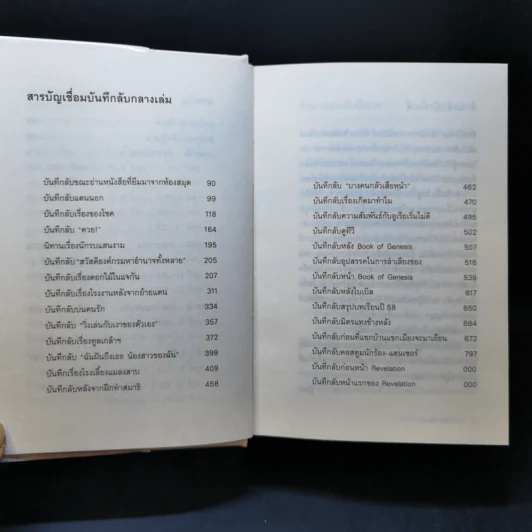 สารบัญเชื่อมบันทึกลับกลางเล่ม
บันทึกลับขณะอ่านหนังสือที่ยืมมาจากห้องสมุด 90
บันทึกลับแดนนอก 99
บันทึกลับเรื่องของโชค 118
บันทึกลับ "ควย!" 154
นิทานเรื่องนักรบแสนงาม 195
บันทึกลับ "สวัสดีองค์กรมหาอำนาจทั้งหลาย" 205
บันทึกลับเรื่องดอกไม้ในแจกัน 207
บันทึกลับเรื่องโรงงานหลังจากย้ายแดน 311
บันทึกลับบ่นคนรัก 334
บันทึกลับ "วิ่งเล่นกับเงาของตัวเอง" 357
บันทึกลับเรื่องทูลเกล้าฯ 372
บันทึกลับ "ฉันฝันถึงเธอ น้องสาวของฉัน" 399
บันทึกเรื่องโรงเลี้ยงแมลงสาบ 409
บันทึกลับหลังจากฝึกทำสมาธิ 458
บันทึกลับ "บางคนกลัวเสียหน้า" 462
บันทึกลับเรื่องเกิดมาทำไม 470
บันทึกลับความสัมพันธ์กับอูเรียเริ่มไม่ดี 495
บันทึกลับดูทีวี 502
บันทึกลับหลัง Book of Genesis 507
บันทึกลับอุปสรรคในการลำเลียงของ 516
บันทึกลับหน้า Book of Genesis 539
บันทึกลับหลังไบเบิล 617
บันทึกลับสรุปบทเรียนปี 58 650
บันทึกลับมิตรแทงข้างหลัง 664
บันทึกลับก่อนที่แขกบ้านแขกเมืองจะมาเยือน 672
บันทึกลับคอสตูมนักร้อง-แดนเซอร์ 797
บันทึกลับก่อนหน้า Revelation 000
บันทึกลับหน้าแรกของ Revelation 000